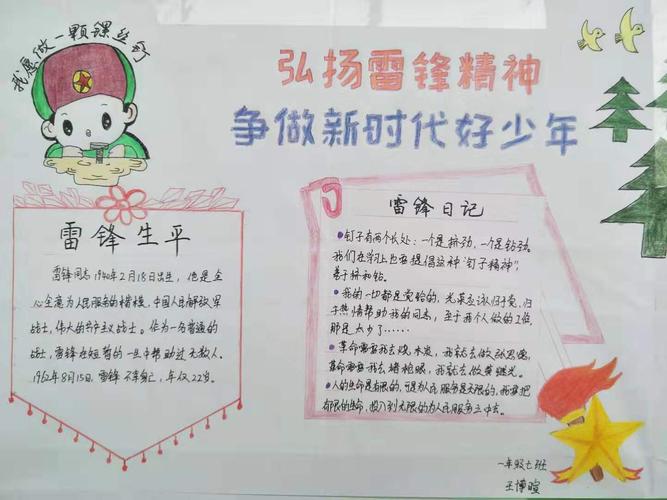 我愿做一颗螺丝钉
弘扬雷锋精神
争做新时代好少年
雷锋生平
雷锋同志1940年2月18日出生，他是全
心全意为人民服务的楷模，中国人民解放军
战士，伟大的共产主义战士。作为一名普通的
战士，雷锋在短暂的一生中帮助过无数人。
1962年8月15日，雷锋不幸身亡，年仅22岁。
雷锋日记
●钉子有两个长处：一个是挤劲，一个是钻劲。
我们在学习上也要提倡这种"钉子精神"，
善于挤和钻。
●我的一切都是党给的，光荣应该归于党，归
于热情帮助我的同志，至于我个人做的工作，
那是太少了……
●革命需要我去烧木炭，我就去做张思德，
革命需要我去堵枪眼，我就去做黄继光。
●人的生命是有限的，可是为人民服务是无限的，我要把
有限的生命，投入到无限的为人民服务之中去。
一年级七班
王博暄